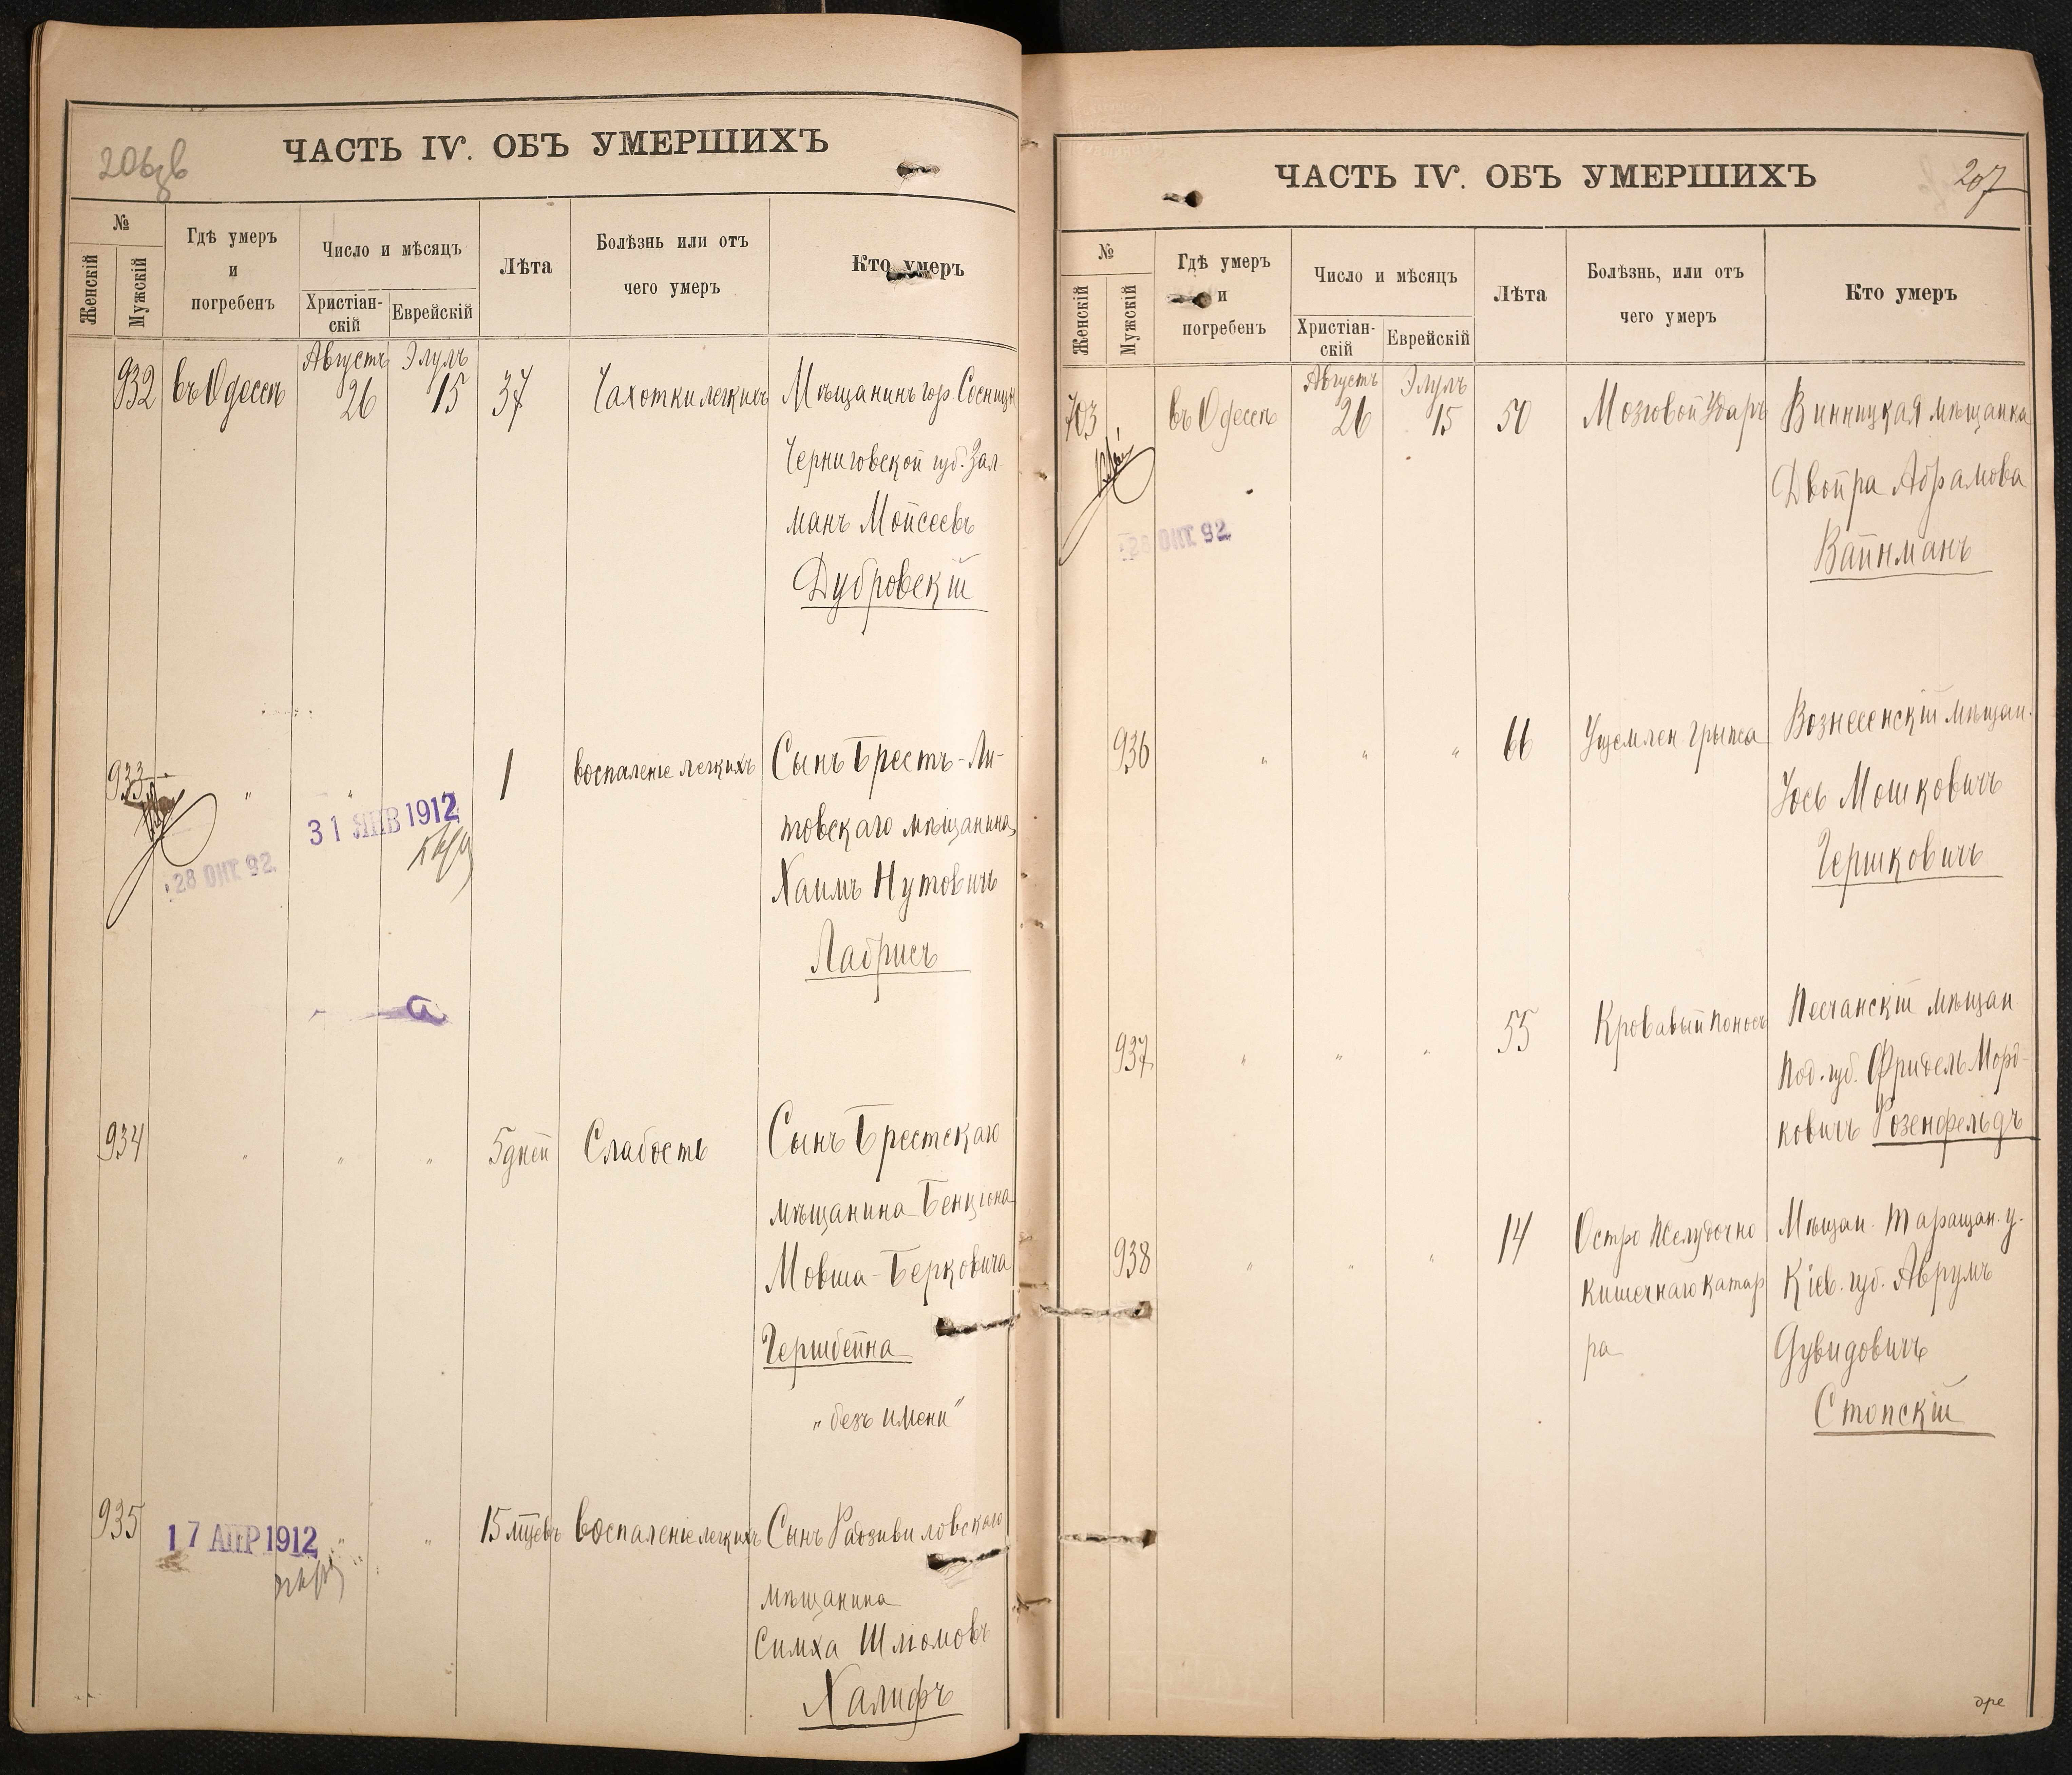 206 об
ЧАСТЬ IV. ОБЪ УМЕРШИХЪ
№
Женскій
Мужскій
Гдѣ умеръ
и
погребенъ
Число и мѣсяцъ
Христіан-
скій
Еврейскій
Лѣта
Болѣзнь или отъ
чего умеръ
Кто умеръ
Августъ Элулъ
932 въ Одессѣ 26 15 37 Чахотки легкихъ Мѣщанинъ гор. Сосницы
Черниговской губ. Зал-
манъ Мойсеевъ
Дубровскій
933 " " " 1 воспаленіе легкихъ Сынъ Брестъ-Ли-
товскаго мѣщанина
Хаимъ Нутовичъ
Лабрисъ
31 ЯНВ 1912
28 ОКТ. 92.
934 " " " 5 дней Слабость Сынъ Брестскаго
мѣщанина Бенціона
Мовша-Берковича
Гершбейна
"безъ имени"
935 " " 15 мѣсцевъ Воспаленіе легкихъ Сынъ Радзивиловскаго
мѣщанина
Симха Шліомовъ
Халифъ
17 АПР 1912
ЧАСТЬ IV. ОБЪ УМЕРШИХЪ
207
№
Женскій
Мужскій
Гдѣ умеръ
и
погребенъ
Число и мѣсяцъ
Христіан-
скій
Еврейскій
Лѣта
Болѣзнь, или отъ
чего умеръ
Кто умеръ
Августъ Элулъ
703 въ Одессѣ 26 15 50 Мозговой Ударъ Винницкая мѣщанка
Двойра Абрамова
Вайнманъ
28 ОКТ. 92
936 " " " 66 Ущемлен грыжа Вознесенскій мѣщан.
Іось Мошковичъ
Гершковичъ
937 " " " 55 Кровавый поносъ Песчанскій мѣщан
Под. губ. Фридель Морд-
ковичъ Розенфельдъ
938 " " " 14 Остро Желудочно Мѣщан. Таращан. у.
кишечнаго катар Кіев. губ. Аврумъ
ра Дувидовичъ
Стопскій